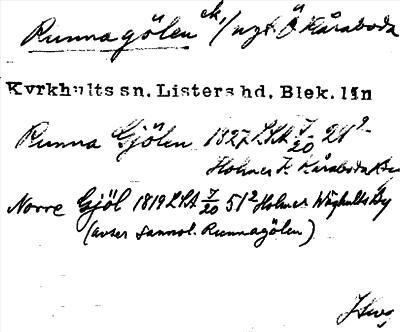 Runnagölen ek. / nzt. Ö Kåraboda
Kyrkhults sn. Listers hd. Blek. län
Runna Gjölen 1827 LSA J/20 28²-
Holmer f. Kåraboda
Norre Gjöl 1819 LSA J/20 51² Holmer Wåghults By
(avser sannol. Runnagölen)